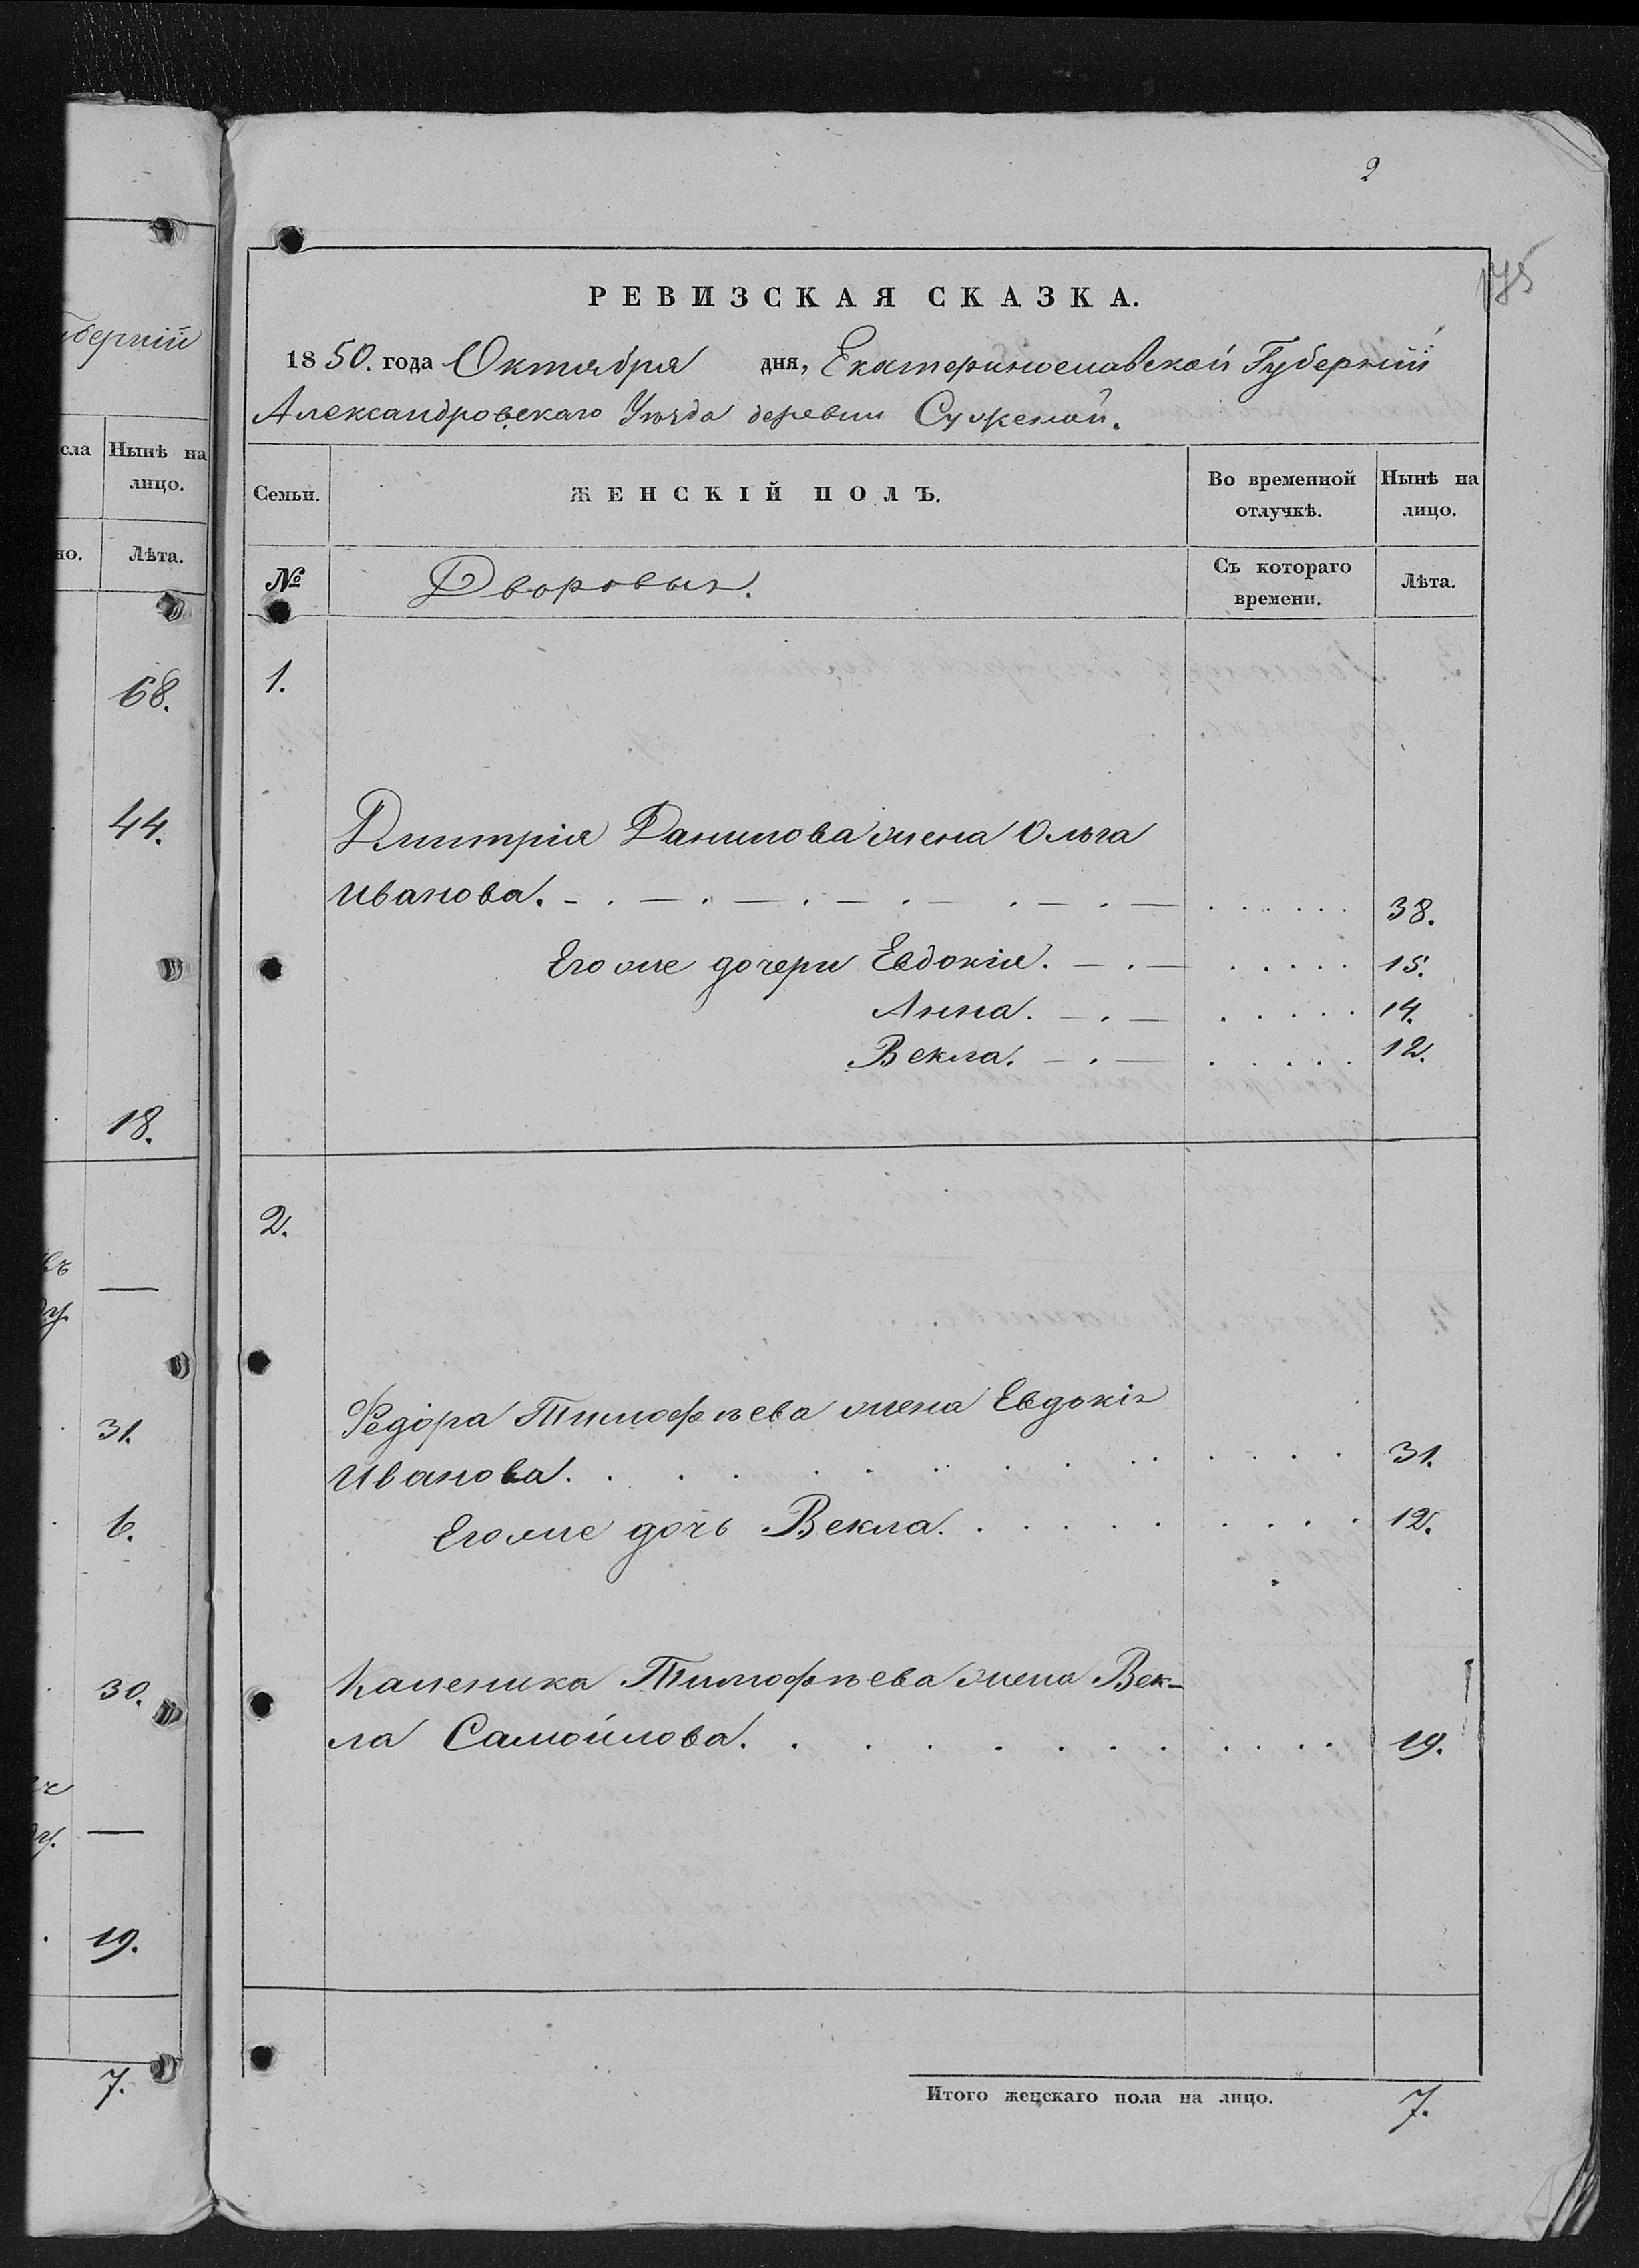 2
175
РЕВИЗСКАЯ СКАЗКА.
1850. года Октября дня, Екатеринославской Губерніи
Александровскаго Уѣзда деревни Суженой.
Семьи.
ЖЕНСКІЙ ПОЛЪ.
Во временной отлучкѣ.
Нынѣ на лицо.
№
Дворовых.
Съ котораго времени.
Лѣта.
1.
Дмитрія Данилова жена Ольга
Иванова. 38.
Его же дочери Евдокія. 15.
Анна. 14.
Векла. 12.
2.
Федора Тимофѣева жена Евдокія
Иванова. 31.
Его же дочь Векла. 12.
Каленика Тимофѣева жена Век-
ла Самойлова. 19.
Итого женскаго пола на лицо. 7.
уберніи
сла
Нынѣ на
лицо.
но.
Лѣта.
68.
44.
18.
ду.
31.
6.
30.
ду.
19.
7.